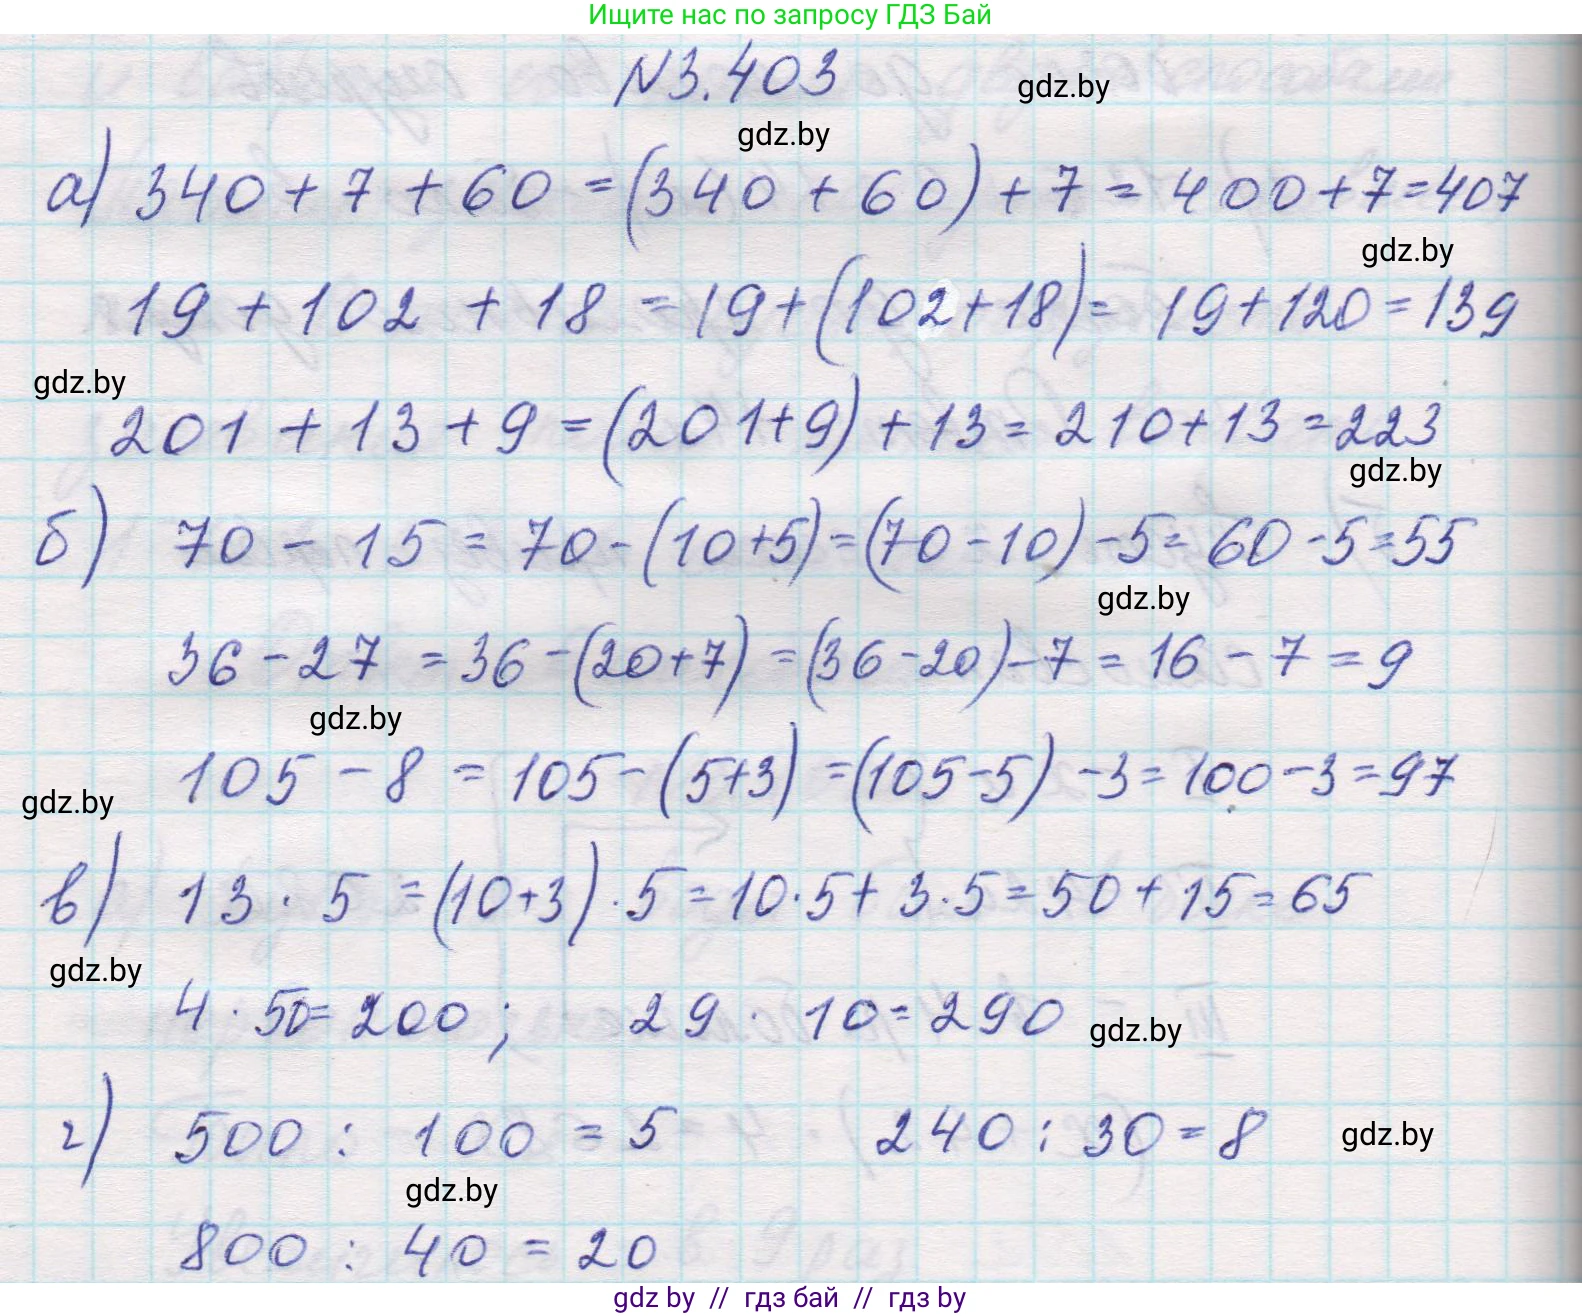 Ищите нас по запросу ГДЗ Бай
N3.403
gdz.by
gdz.by
а) 340 + 7 + 60 = (340 + 60) + 7 = 400 + 7 = 407
gdz.by
19 + 102 + 18 = 19 + (102 + 18) = 19 + 120 = 139
gdz.by
201 + 13 + 9 = (201 + 9) + 13 = 210 + 13 = 223
gdz.by
б) 70 - 15 = 70 - (10 + 5) = (70 - 10) - 5 = 60 - 5 = 55
gdz.by
36 - 27 = 36 - (20 + 7) = (36 - 20) - 7 = 16 - 7 = 9
gdz.by
105 - 8 = 105 - (5 + 3) = (105 - 5) - 3 = 100 - 3 = 97
gdz.by
в) 13 · 5 = (10 + 3) · 5 = 10 · 5 + 3 · 5 = 50 + 15 = 65
gdz.by
4 · 50 = 200 ; 29 · 10 = 290
gdz.by
г) 500 : 100 = 5 240 : 30 = 8
gdz.by
gdz.by
800 : 40 = 20
gdz by // гдз бай // gdz by